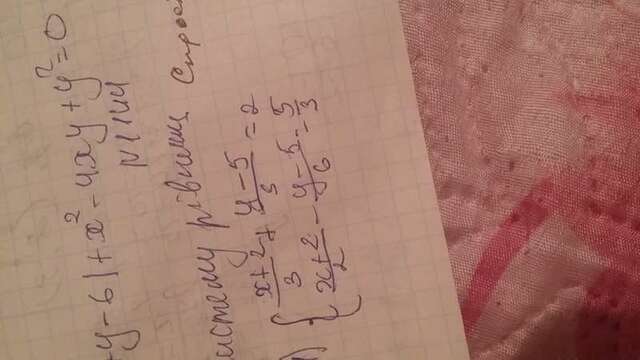 +y-6|+x²-4xy+y²=0
N1144
систему рівнянь Спрос
1) { (x+2)/3 + (y-5)/5 = 2
(x+2)/2 - (y-5)/6 = 5/3